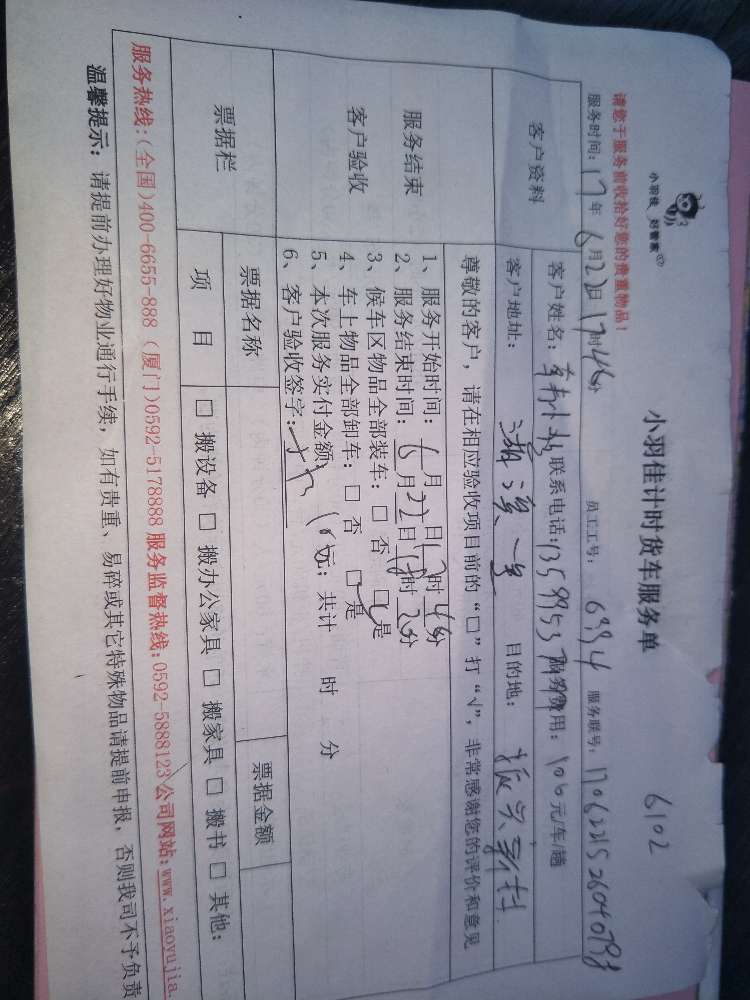 小羽佳 好管家
小羽佳计时货车服务单
6102
请您于服务前收拾好您的贵重物品！
服务时间：17年6月22日17时46分 员工工号：6994 服务联号：
客户资料
客户姓名： 联系电话： 服务费用：100元/车/趟
客户地址： 目的地：振兴新村
尊敬的客户，请在相应验收项目前的“□”打“√”，非常感谢您的评价和意见
服务结束
客户验收
1、服务开始时间：6月 日17时46分
2、服务结束时间：6月22日18时20分
3、候车区物品全部装车：□ 否 □ 是
4、车上物品全部卸车：□ 否 □ 是
5、本次服务实付金额： 元；共计 时 分
6、客户验收签字：
票据栏
票据名称 票据金额
项 目 □ 搬设备 □ 搬办公家具 □ 搬家具 □ 搬书 □ 其他：
服务热线：(全国)400-6655-888 (厦门)0592-5178888 服务监督热线：0592-5888123 公司网站：www.xiaoyujia.
温馨提示：请提前办理好物业通行手续，如有贵重、易碎或其它特殊物品请提前申报，否则我司不予负责